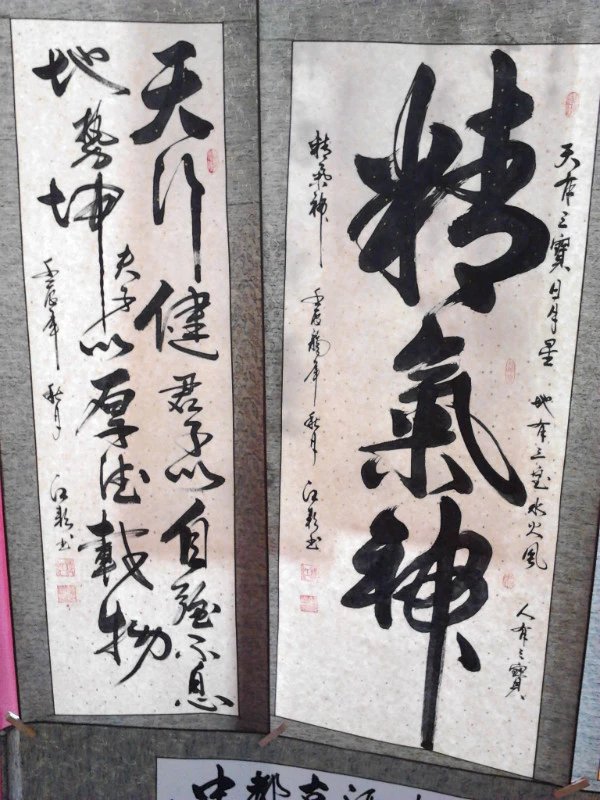 天有三寶日月星 地有三宝水火風 人有三寶
精氣神
精氣神 壬辰龍年 秋月 书
天行健君子以自強不息
地勢坤夫子以厚德載物
壬辰年 秋月 书
中都古